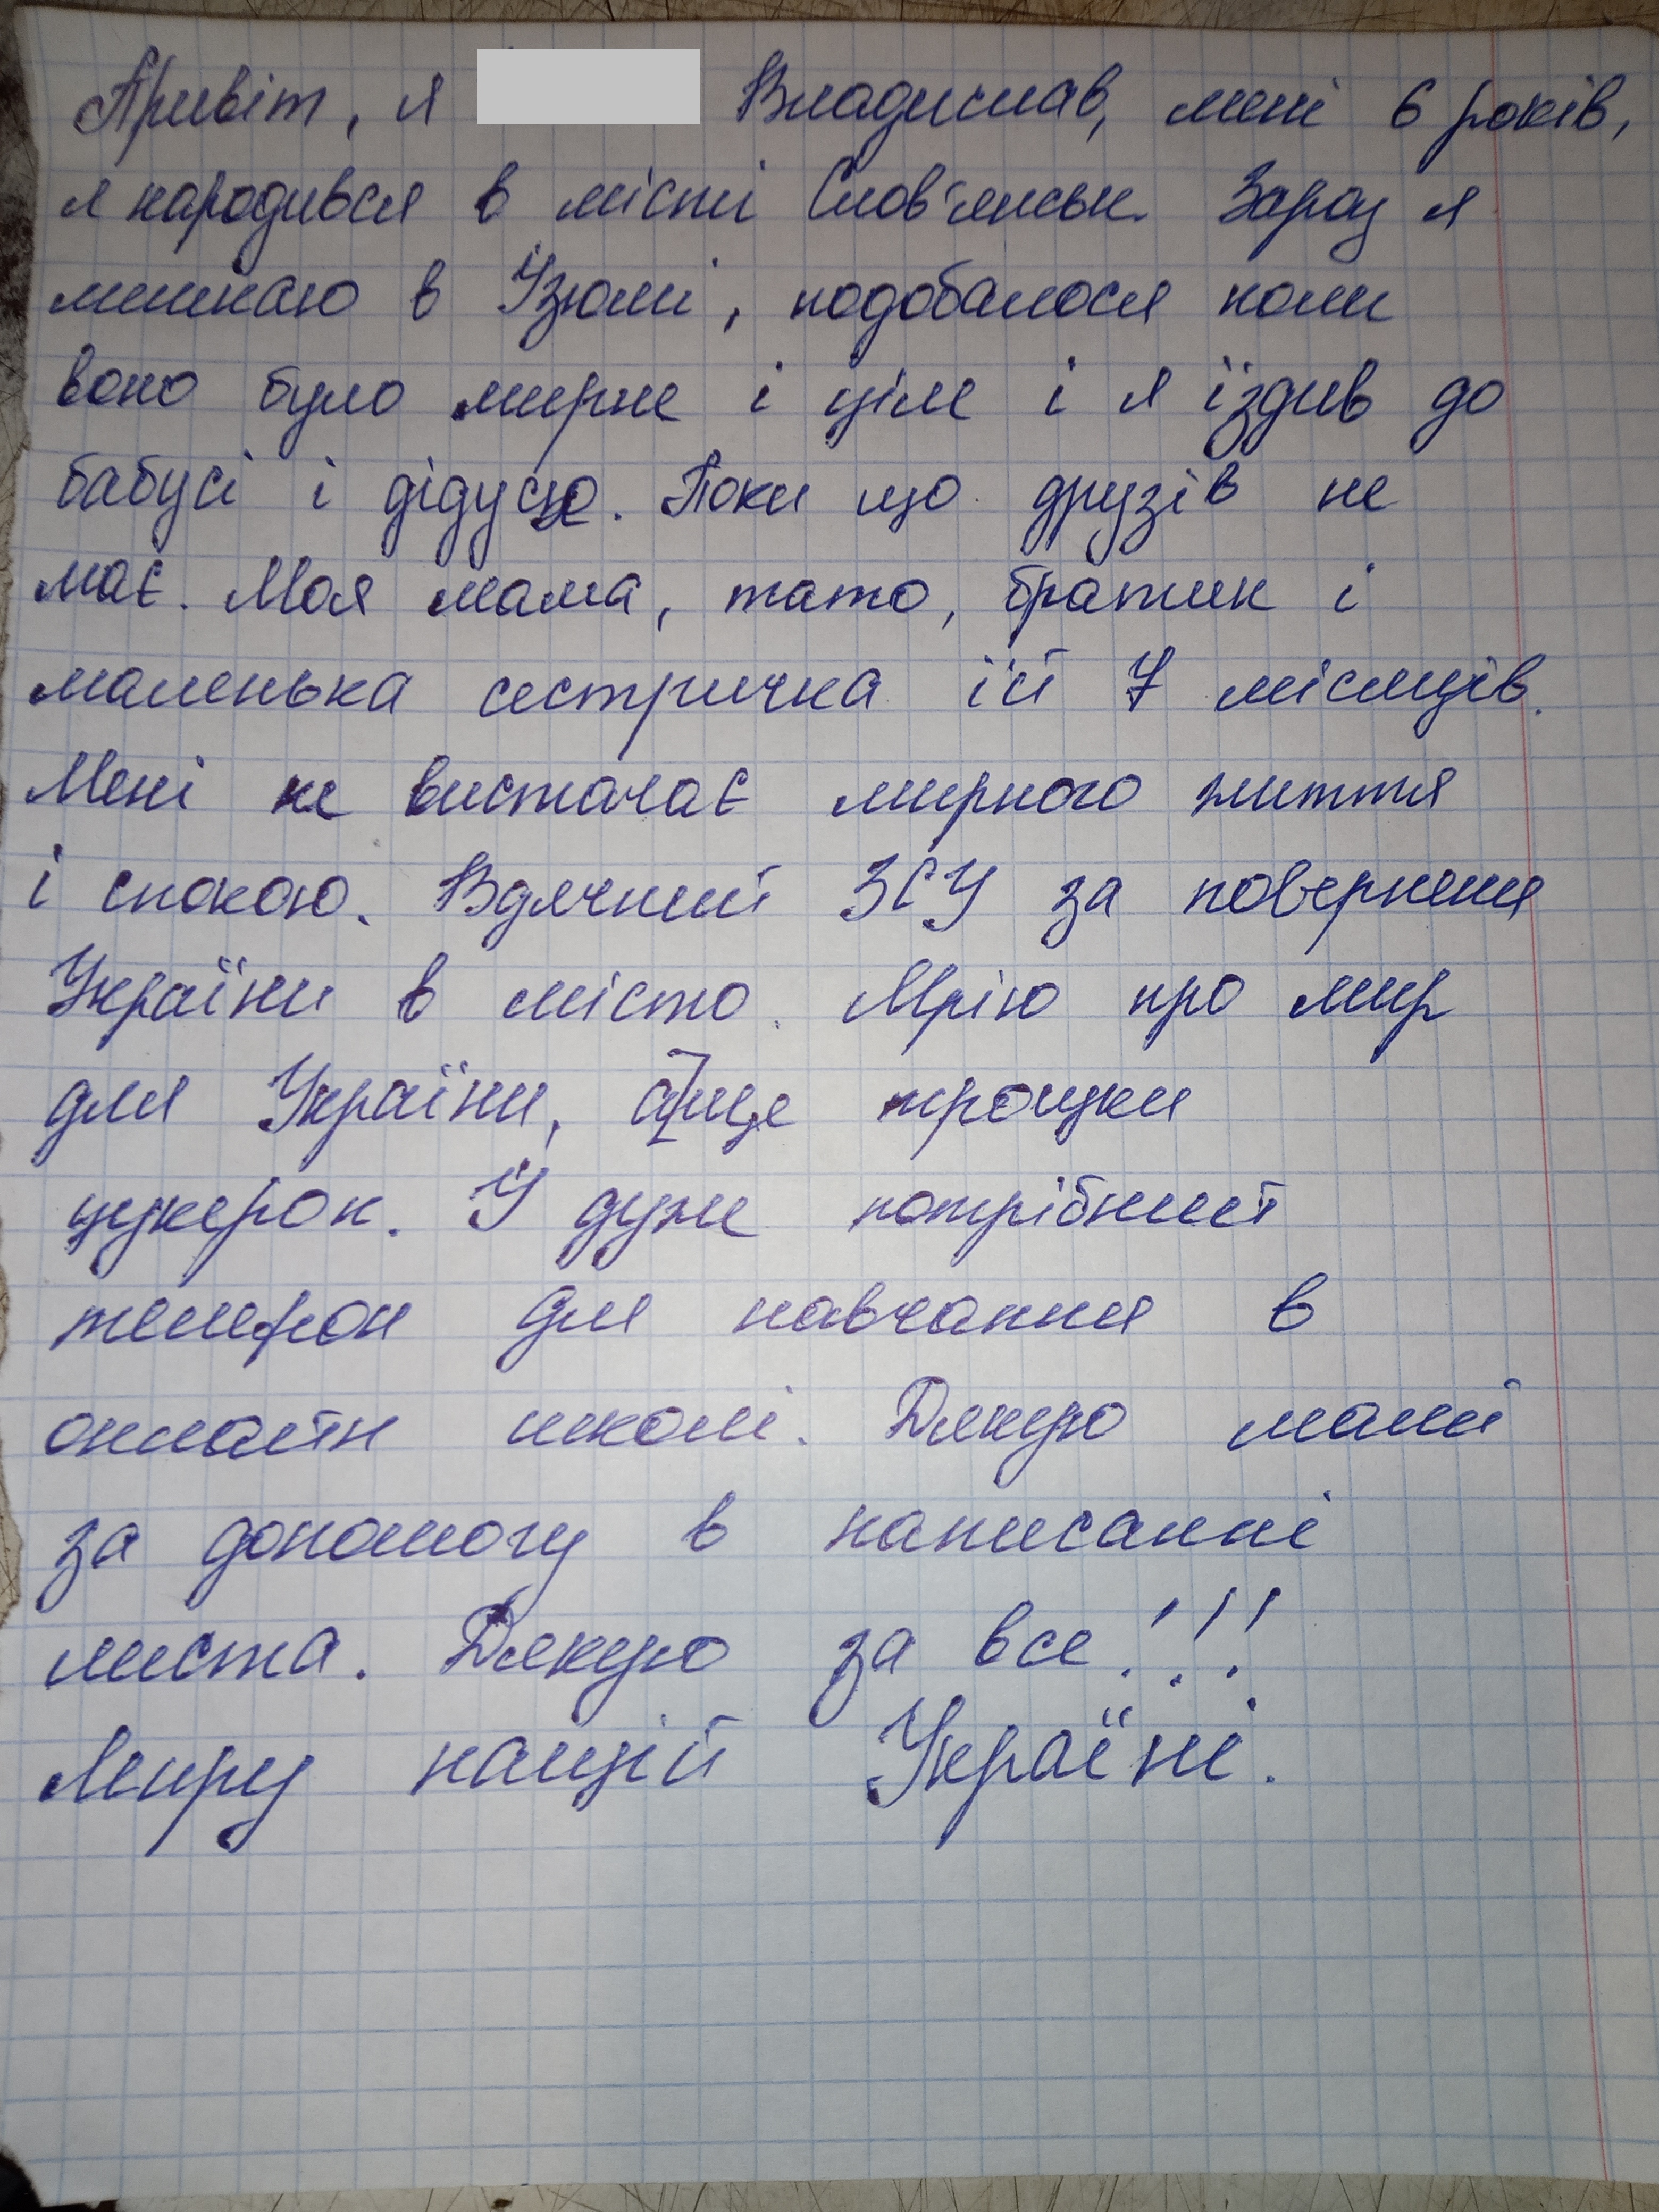 Привіт, я Владислав, мені 6 років,
я народився в місті Слов'янськ. Зараз я
мешкаю в Ізюмі, подобалося коли
воно було мирне і ціле і я їздив до
бабусі і дідусю. Поки що друзів не
має. Моя мама, тато, братик і
маленька сестричка їй 7 місяців.
Мені не вистачає мирного життя
і спокою. Вдячний ЗСУ за повернення
України в місто. Мрію про мир
для України, а ще трошки
цукерок. Й дуже потрібний
телефон для навчання в
онлайн школі. Дякую мамі
за допомогу в написанні
листа. Дякую за все!!!
Миру нашій Україні.